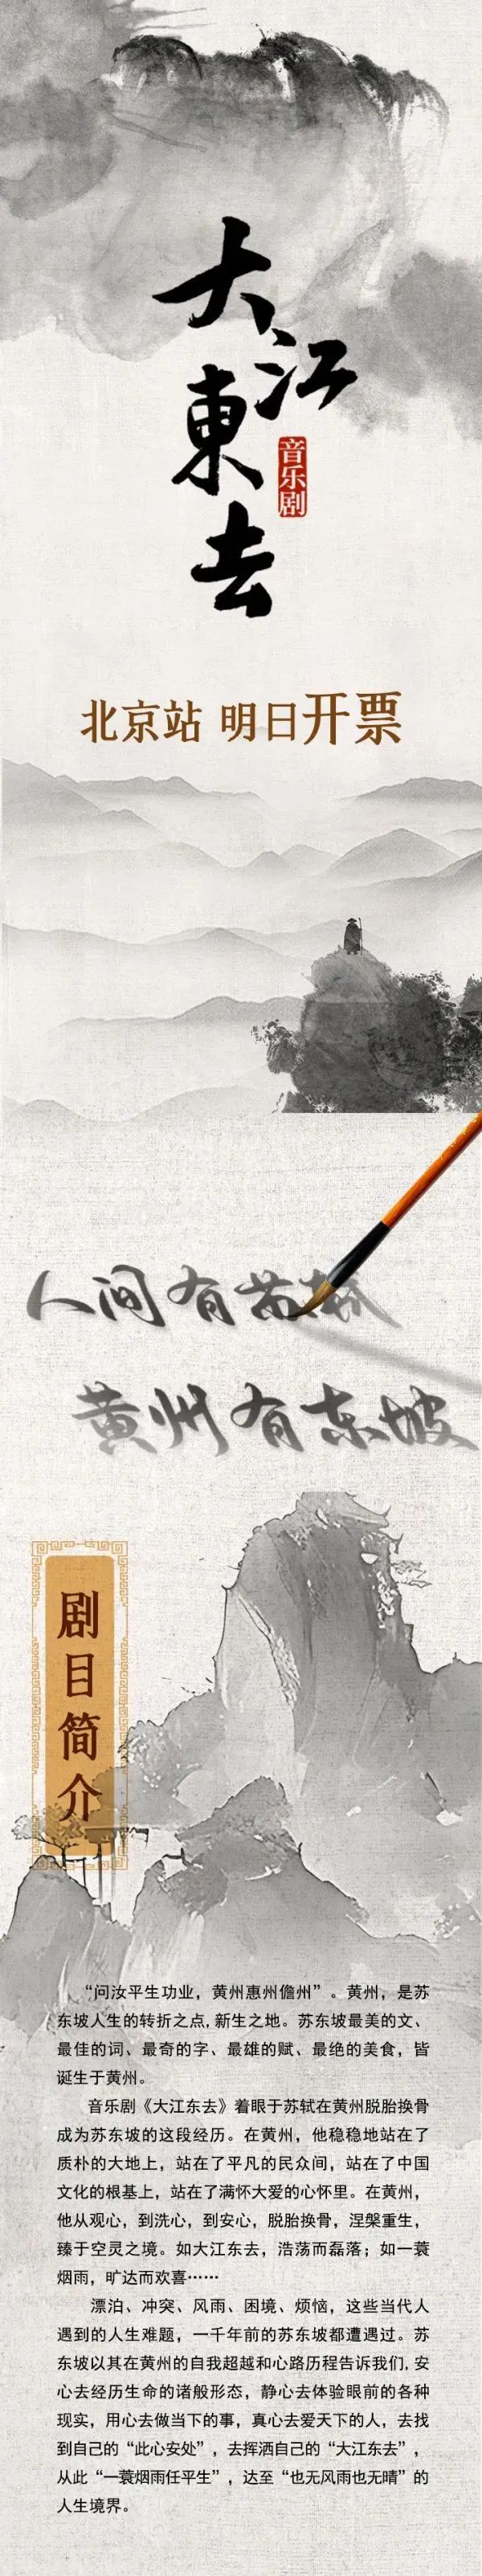 大江東去
音乐剧
北京站 明日开票
人间有苏轼
黄州有东坡
剧目简介
“问汝平生功业，黄州惠州儋州”。黄州，是苏
东坡人生的转折之点,新生之地。苏东坡最美的文、
最佳的词、最奇的字、最雄的赋、最绝的美食，皆
诞生于黄州。
音乐剧《大江东去》着眼于苏轼在黄州脱胎换骨
成为苏东坡的这段经历。在黄州，他稳稳地站在了
质朴的大地上，站在了平凡的民众间，站在了中国
文化的根基上，站在了满怀大爱的心怀里。在黄州，
他从观心，到洗心，到安心，脱胎换骨，涅槃重生，
臻于空灵之境。如大江东去，浩荡而磊落；如一蓑
烟雨，旷达而欢喜……
漂泊、冲突、风雨、困境、烦恼，这些当代人
遇到的人生难题，一千年前的苏东坡都遭遇过。苏
东坡以其在黄州的自我超越和心路历程告诉我们,安
心去经历生命的诸般形态，静心去体验眼前的各种
现实，用心去做当下的事，真心去爱天下的人，去找
到自己的“此心安处”，去挥洒自己的“大江东去”，
从此“一蓑烟雨任平生”，达至“也无风雨也无晴”的
人生境界。